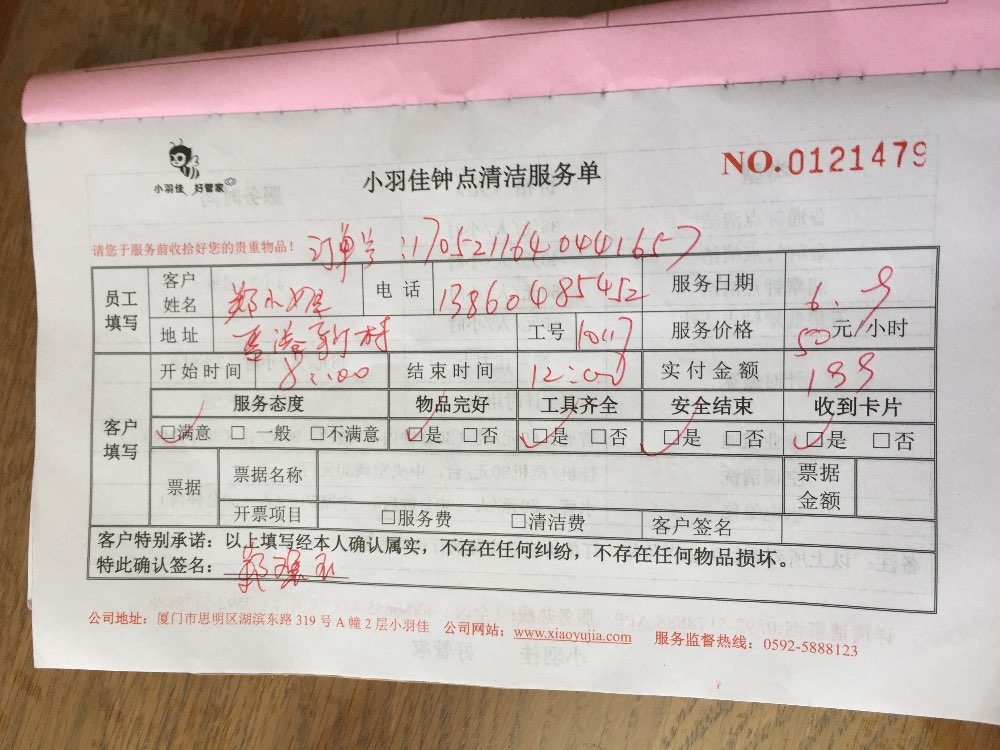 小羽佳 好管家
小羽佳钟点清洁服务单
NO.0121479
请您于服务前收拾好您的贵重物品!
订单号:17052116404441657
员工填写 客户姓名 郑小姐 电话 13860485452 服务日期 6.9
地址 新村 工号 10117 服务价格 50元/小时
客户填写 开始时间 8:00 结束时间 12:00 实付金额 199
服务态度 物品完好 工具齐全 安全结束 收到卡片
☑满意 □ 一般 □不满意 ☑是 □否 ☑是 □否 ☑是 □否 ☑是 □否
票据 票据名称 票据金额
开票项目 □服务费 □清洁费 客户签名
客户特别承诺:以上填写经本人确认属实,不存在任何纠纷,不存在任何物品损坏。
特此确认签名:
公司地址:厦门市思明区湖滨东路 319 号 A 幢 2 层小羽佳 公司网站:www.xiaoyujia.com 服务监督热线:0592-5888123